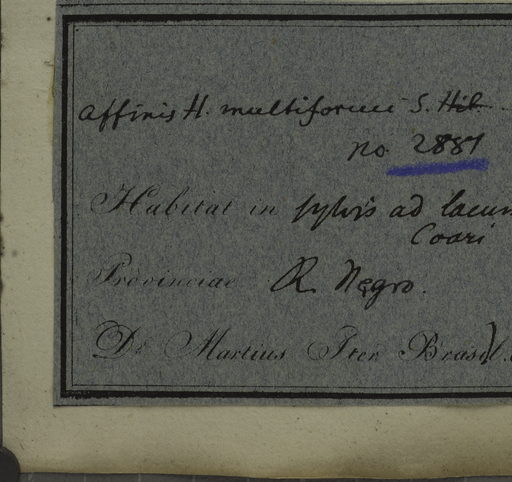 Affinis H. multiforuii S. Hil
no 2881
Habitat in sylvis ad lacum
Coari
Provinciae R. Negro.
Dr Martius Iter Brasil.